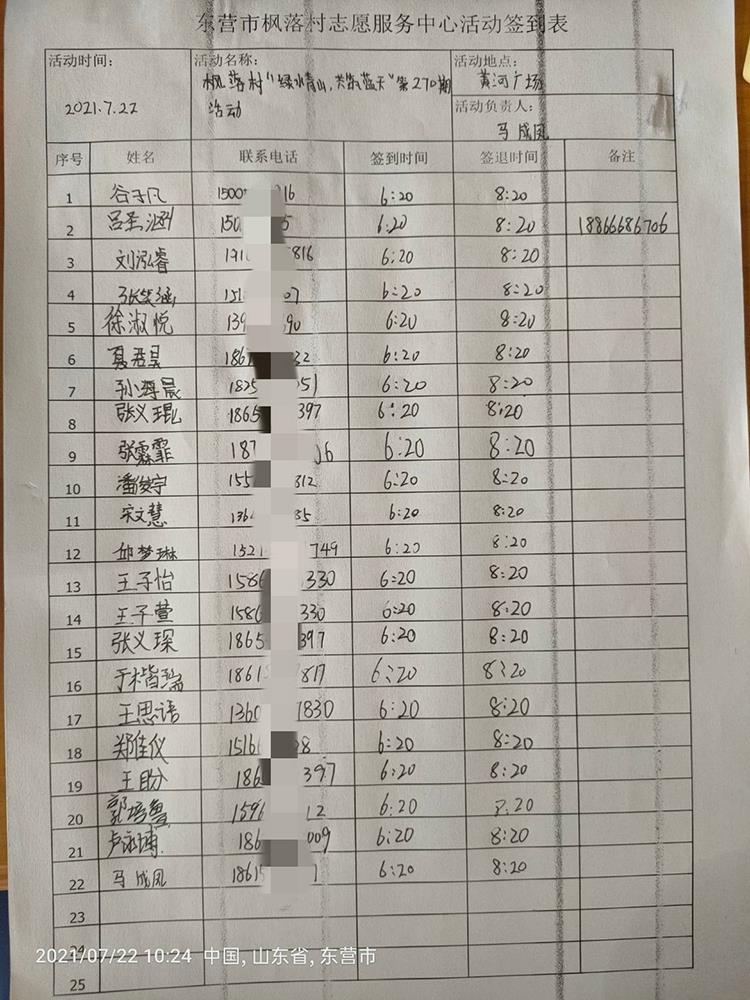 东营市枫落村志愿服务中心活动签到表
活动时间： 活动名称： 活动地点：
2021.7.22 枫落村"绿水青山,共筑蓝天"第270期 黄河广场
活动 活动负责人：
马成凤
序号 姓名 联系电话 签到时间 签退时间 备注
1 谷子凡 1500 16 6:20 8:20
2 吕圣涵 150 5 6:20 8:20 18866686706
3 刘泓睿 191 816 6:20 8:20
4 张笑涵 151 07 6:20 8:20
5 徐淑悦 139 90 6:20 8:20
6 夏君昊 186 32 6:20 8:20
7 孙海晨 1825 51 6:20 8:20
8 张义琨 1865 397 6:20 8:20
9 张霖霏 187 06 6:20 8:20
10 潘俊宇 155 312 6:20 8:20
11 宋文慧 136 35 6:20 8:20
12 邱梦琳 1521 749 6:20 8:20
13 王子怡 1586 330 6:20 8:20
14 王子萱 1586 330 6:20 8:20
15 张义琛 1865 397 6:20 8:20
16 于楷瑞 1861 817 6:20 8:20
17 王思语 1360 1830 6:20 8:20
18 郑佳仪 1516 8 6:20 8:20
19 王盼 186 397 6:20 8:20
20 郭培鲁 1596 12 6:20 8:20
21 卢永博 186 009 6:20 8:20
22 马成凤 18615 1 6:20 8:20
23
24
2021/07/22 10:24 中国,山东省,东营市
25